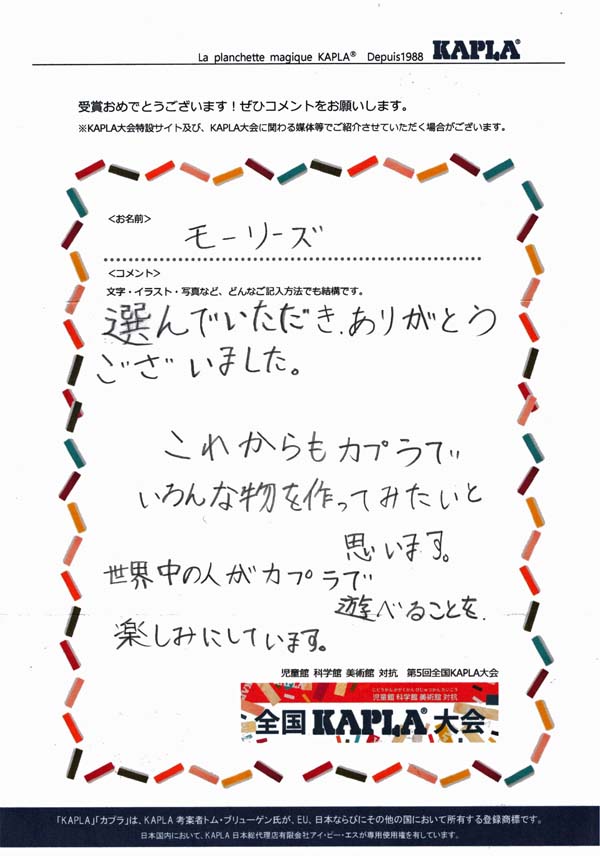 La planchette magique KAPLA® Depuis1988 KAPLA®
受賞おめでとうございます！ぜひコメントをお願いします。
※KAPLA大会特設サイト及び、KAPLA大会に関わる媒体等でご紹介させていただく場合がございます。
<お名前>
モーリーズ
<コメント>
文字・イラスト・写真など、どんなご記入方法でも結構です。
選んでいただき、ありがとう
ございました。
これからもカプラで
いろんな物を作ってみたいと
思います。
世界中の人がカプラで
遊べることを
楽しみにしています。
児童館 科学館 美術館 対抗 第5回全国KAPLA大会
じどうかんかがくかんびじゅつかんたいこう
児童館 科学館 美術館 対抗
全国KAPLA®大会
「KAPLA」「カプラ」は、KAPLA 考案者トム・ブリューゲン氏が、EU、日本ならびにその他の国において所有する登録商標です。
日本国内において、KAPLA 日本総代理店有限会社アイ・ピー・エスが専用使用権を有しています。